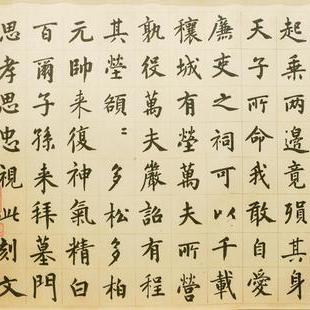 起乘两邊竟殞其身
天子所命我敢自愛
廉吏之祠可以千載
穰城有塋萬夫所營
孰役萬夫嚴詔有程
其塋頟〻多松多柏
元帥来復神氣精白
百爾子孫来拜墓門
思孝思忠視此刻文